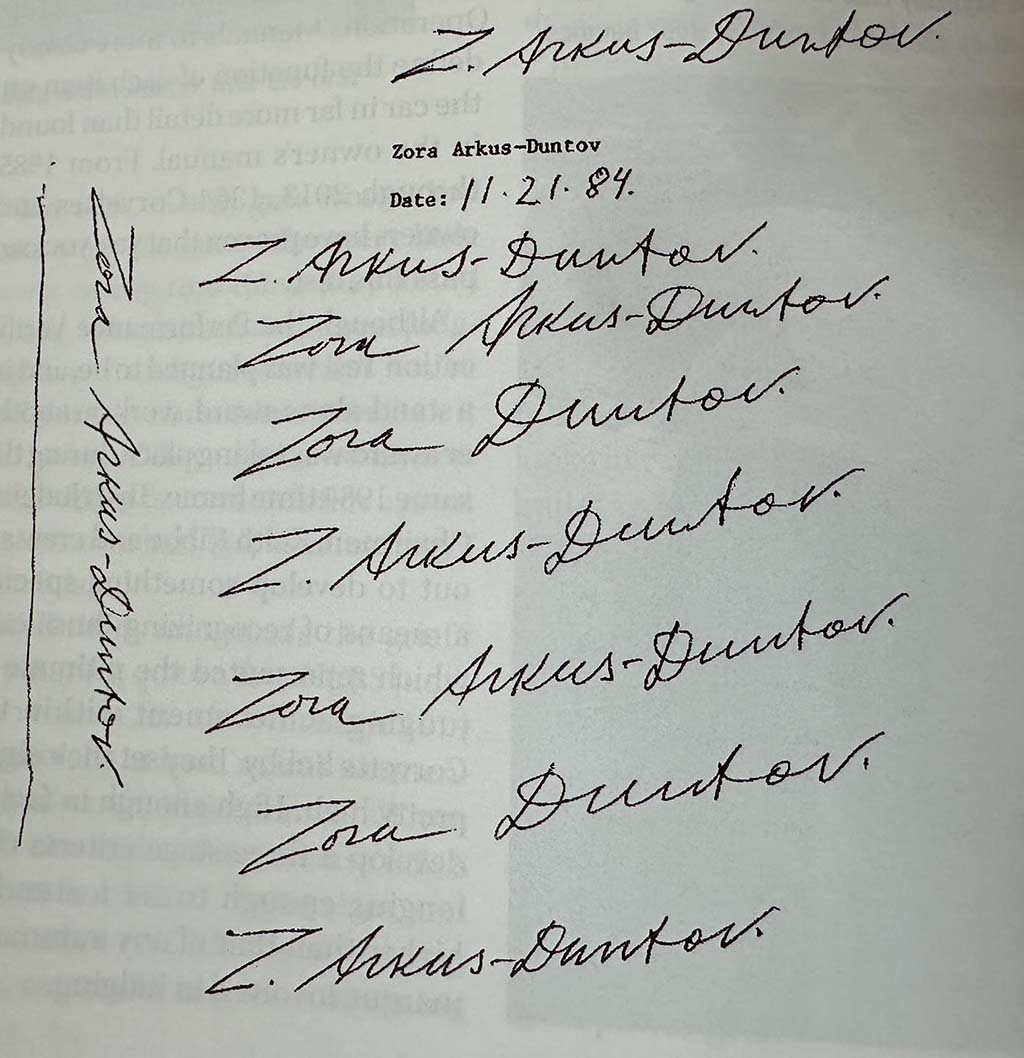 Z. Arkus-Duntov.
Zora Arkus-Duntov
Date: 11.21.84.
Z. Arkus-Duntov.
Zora Arkus-Duntov.
Zora Duntov.
Z. Arkus-Duntov.
Zora Arkus-Duntov.
Zora Duntov.
Z. Arkus-Duntov.
Zora Arkus-Duntov.